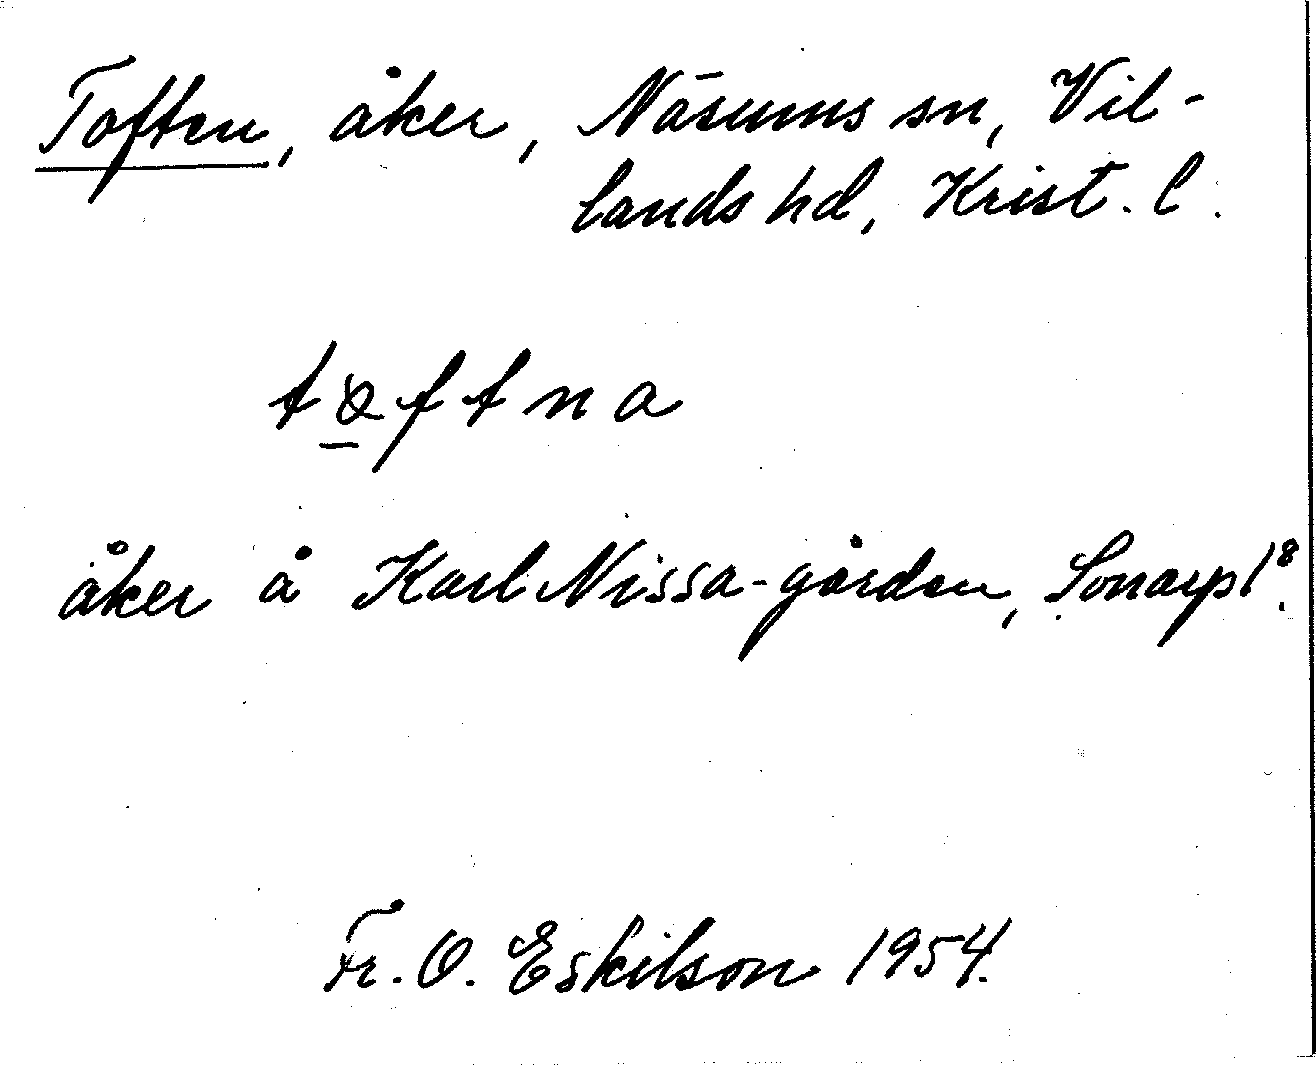 Toften, åker, Näsums sn, Vil-
lands hd, Krist. l.
tøftna
åker å Karl Nissa-gården, Sonarp 1⁸.
Fr. O. Eskilson 1954.